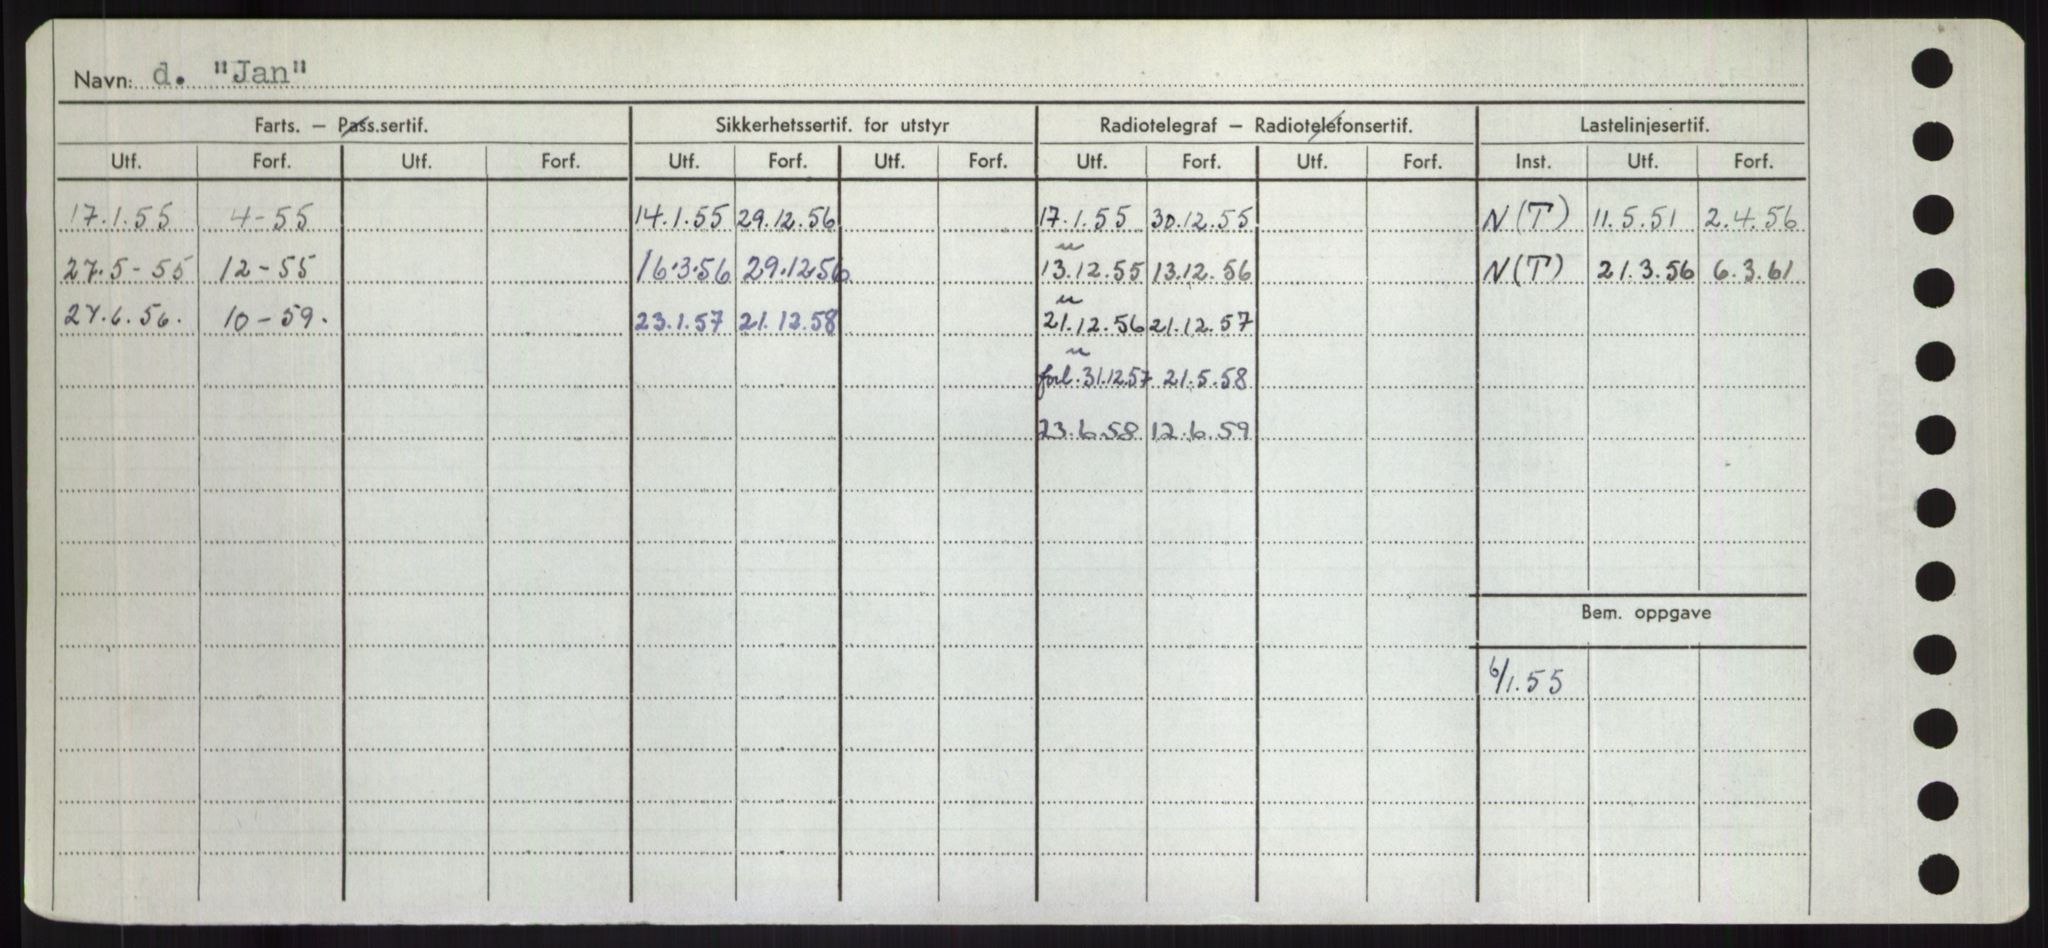 Navn: d. "Jan"
Farts. – Pass.sertif. Sikkerhetssertif. for utstyr Radiotelegraf – Radiotelefonsertif. Lastelinjesertif.
Utf. Forf. Utf. Forf. Utf. Forf. Utf. Forf. Utf. Forf. Utf. Forf. Inst. Utf. Forf.
17.1.55 4-55 14.1.55 29.12.56 17.1.55 30.12.55 N(T) 11.5.51 2.4.56
27.5-55 12-55 16.3.56 29.12.56 13.12.55 13.12.56 N(T) 21.3.56 6.3.61
27.6.56. 10-59. 23.1.57 21.12.58 21.12.56 21.12.57
forl. 31.12.57 21.5.58
23.6.58 12.6.59
Bem. oppgave
6/1.55